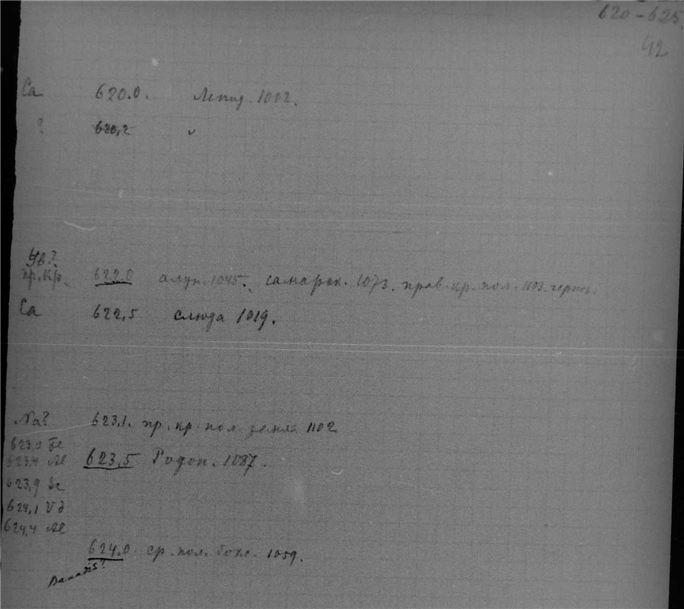 620-625
42
Ca 620.0. Лепид. 1012.
? 620,2 "
Yb?
пр. кр. 622.0 алун. 1045. самарск. 1073. прав. кр. пол. 1103.
Ca 622,5 слюда 1019.
Na? 623.1. пр. кр. пол. земл. 1102
623.0
623,4 Al 623,5 Родон. 1087.
623,9 Sc
624,1 Vd
624,4 Al
624.0 ср. пол. 1059.
Ванад?